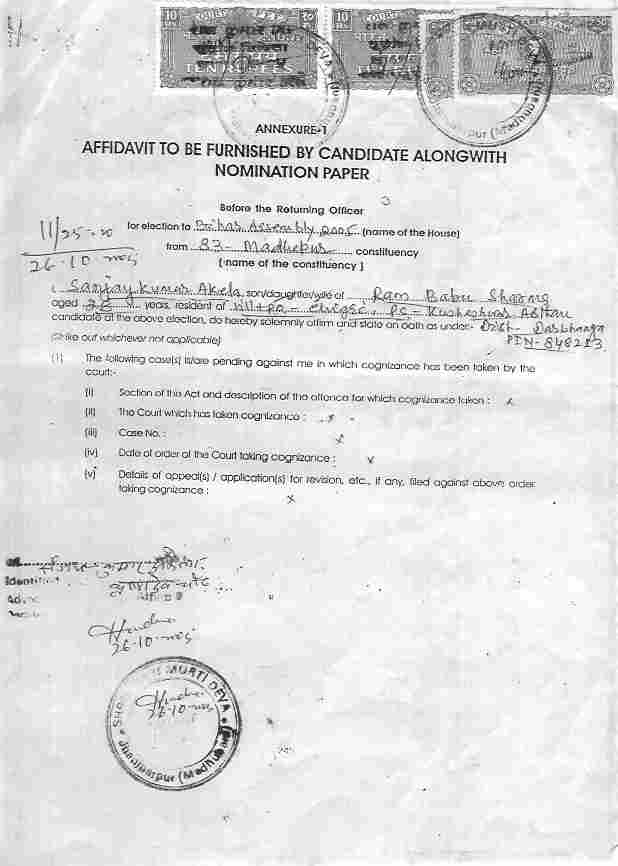 10 RS
COURT FEE
TEN RUPEES
10 RS
COURT
TEN RUPEES
ANNEXURE-1
AFFIDAVIT TO BE FURNISHED BY CANDIDATE ALONGWITH
NOMINATION PAPER
Before the Returning Officer
for election to Bihar Assembly 2005 (name of the House)
11/25-10
26-10-2005
from 83- Madhepur constituency
(name of the constituency)
I Sanjay Kumar Akela son/daughter/wife of Ram Babu
aged 36 years, resident of Vill+po- PS- Kusheshwar Asthan
candidate at the above election, do hereby solemnly affirm and state on oath as under:- Dist- Darbhanga
(Strike out whichever not applicable) PIN- 848213
(1) The following case(s) is/are pending against me in which cognizance has been taken by the
court:-
(i) Section of the Act and description of the offence for which cognizance taken : x
(ii) The Court which has taken cognizance : x
(iii) Case No. : x
(iv) Date of order of the Court taking cognizance : x
(v) Details of appeal(s) / application(s) for revision, etc., if any, filed against above order
taking cognizance : x
26-10-2005
MURTI DEVA
26-10-2005
Jhanjharpur (Madhubani)